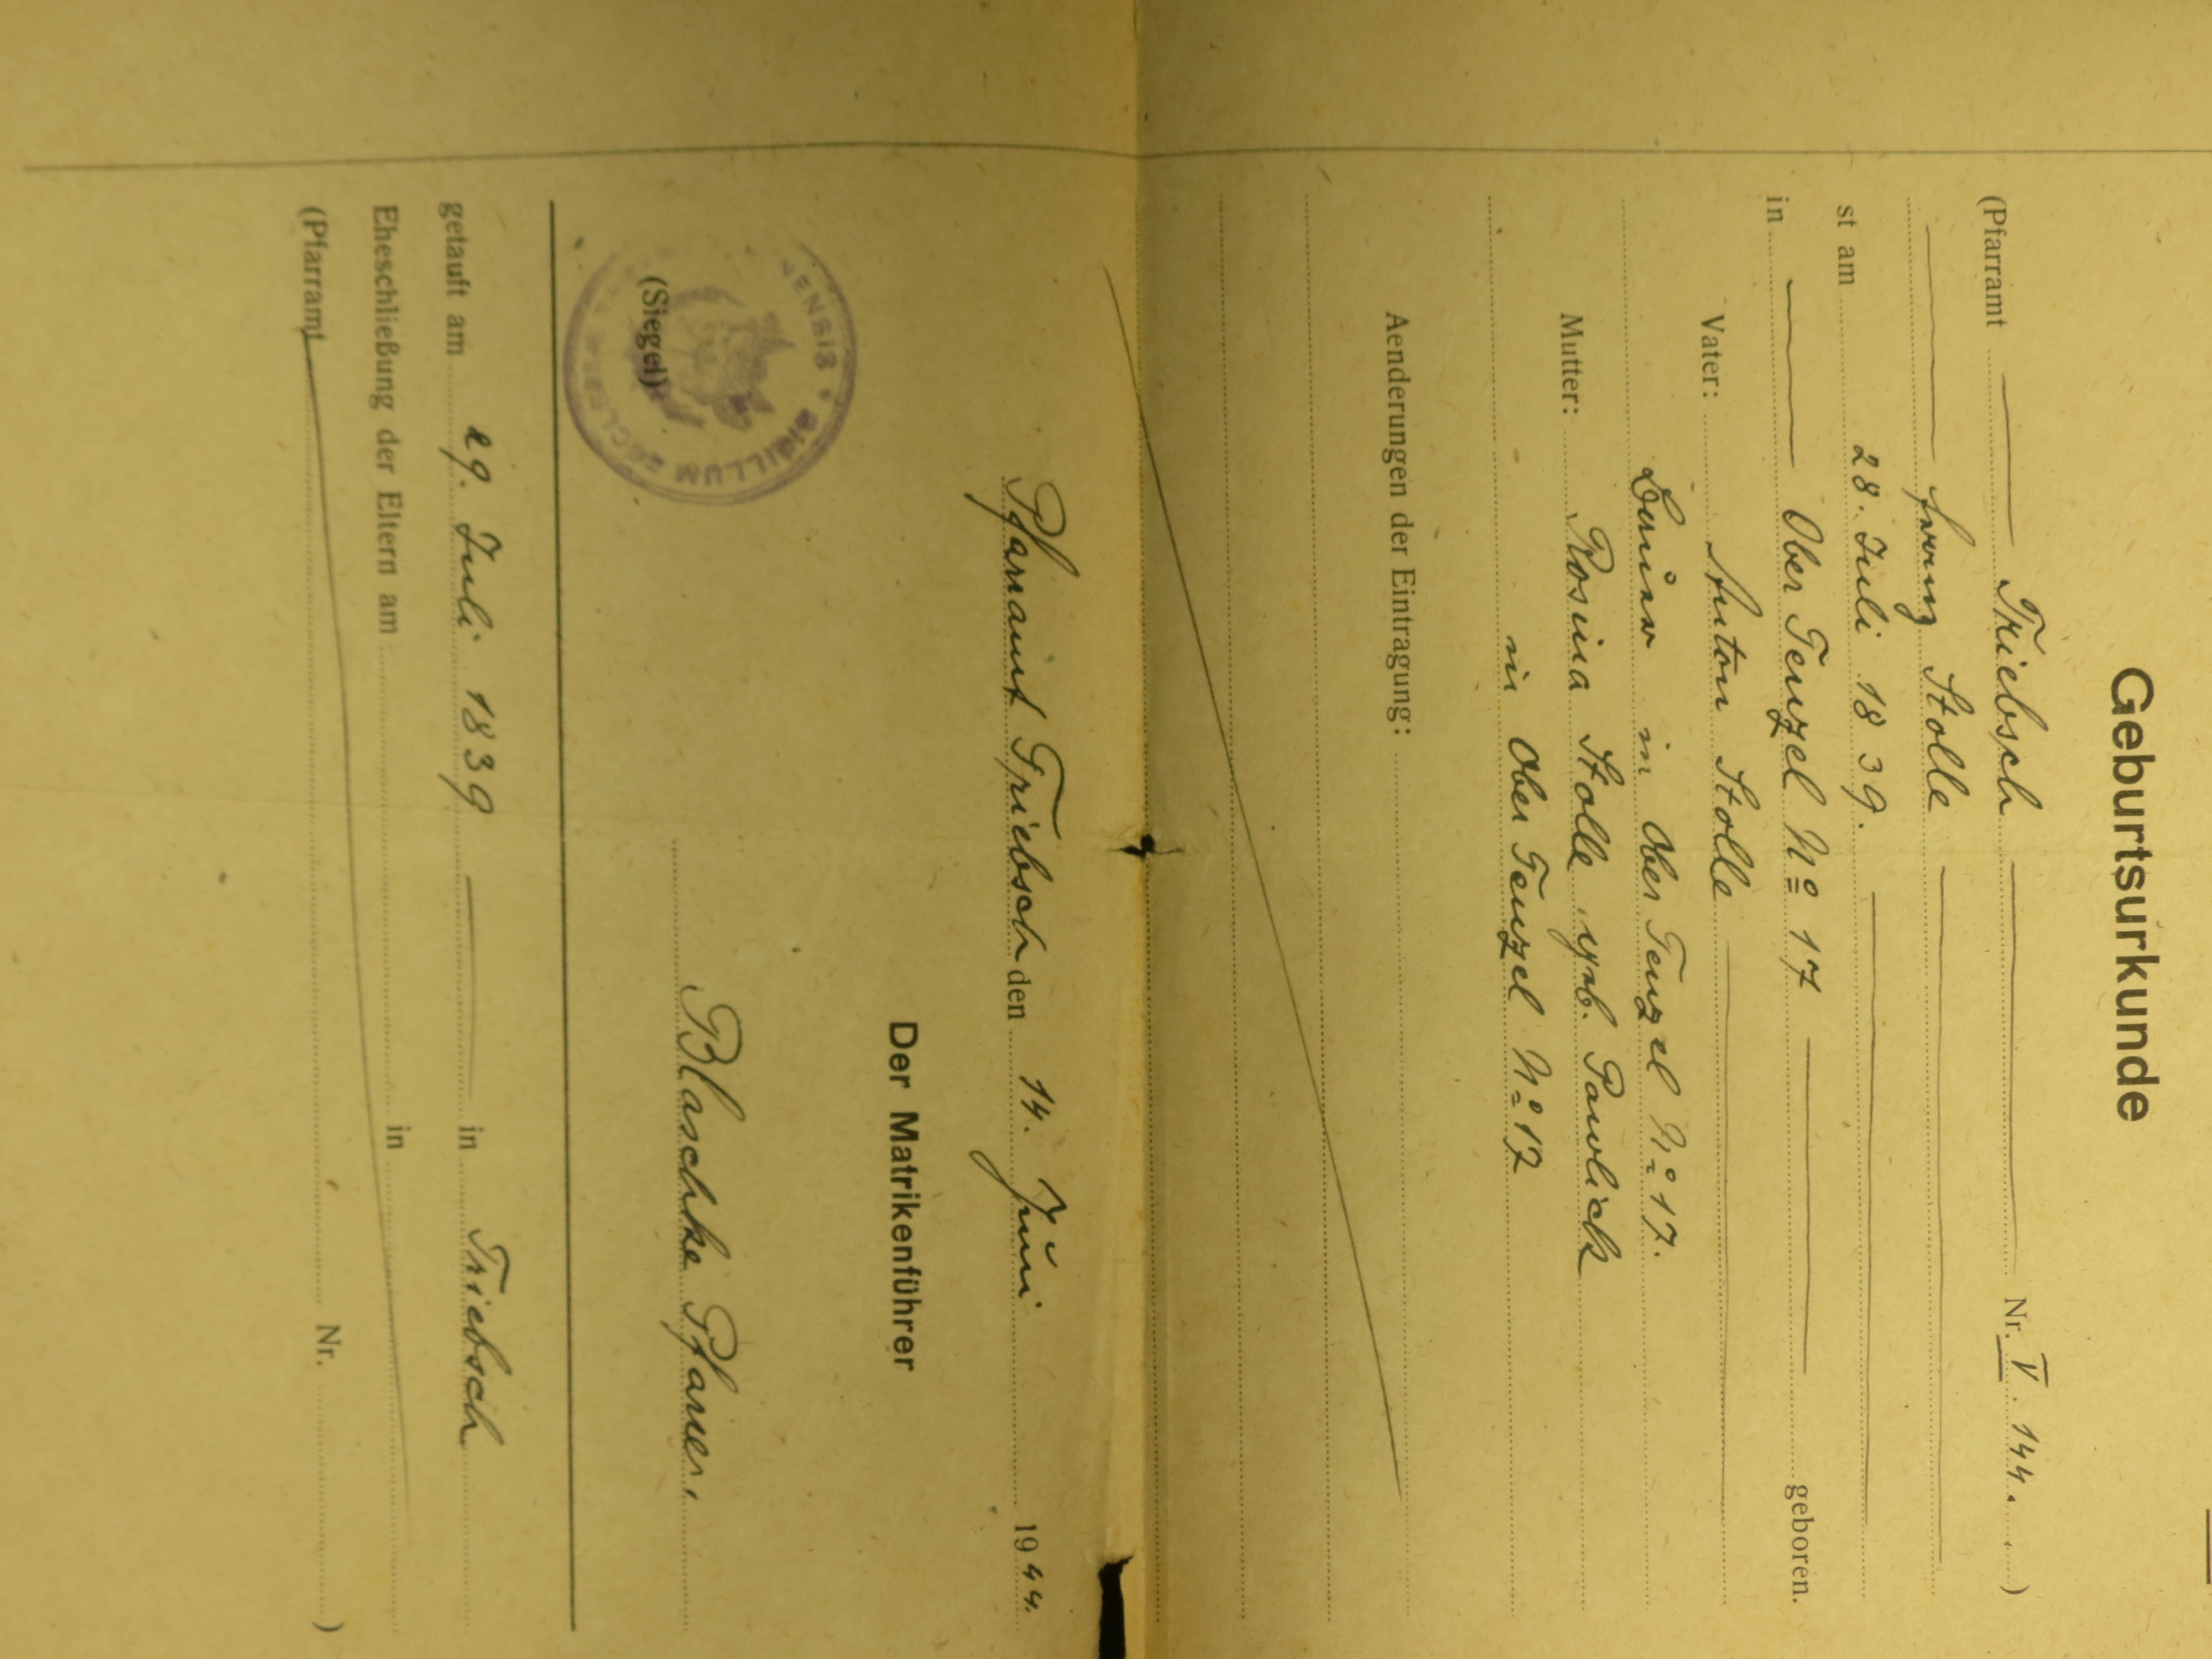 Geburtsurkunde
(Pfarramt Triebsch Nr. V. 144. )
Franz Stolle
st am 28. Juli 1839.
in Ober Tenzel No 17 geboren.
Vater: Anton Stolle
Bauer in Ober Tenzel No 17.
Mutter: Rosina Stolle geb. Pawlick
in Ober Tenzel No 17
Aenderungen der Eintragung:
Pfarramt Triebsch den 14. Juni 1944.
Der Matrikenführer
ENSIS • SIGILLUM
(Siegel)
Blaschke Pfarrer.
getauft am 29. Juli 1839 in Triebsch
Eheschließung der Eltern am in
(Pfarramt Nr. )